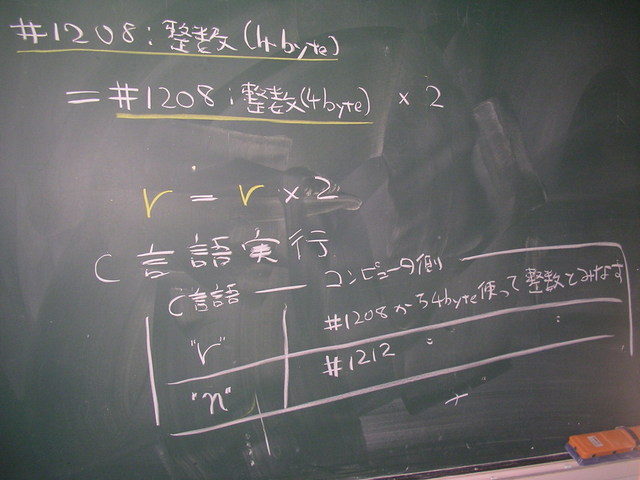 #1208:整数(4byte)
=#1208:整数(4byte) × 2
r = r × 2
C言語実行
C言語 — コンピュータ側
"r" #1208から4byte使って整数とみなす
"n" #1212 : :